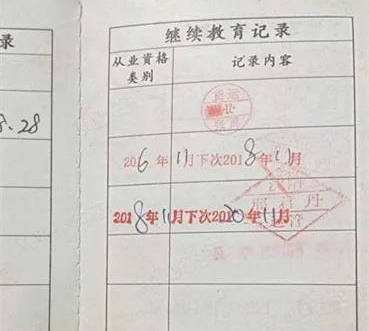 录
8.28
继续教育记录
从业资格
类别
记录内容
2016年11月下次2018年11月
2018年11月下次2020年11月